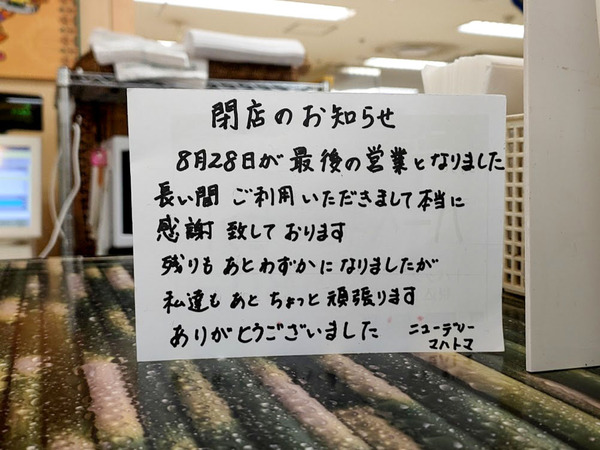 閉店のお知らせ
8月28日が最後の営業となりました
長い間 ご利用いただきまして本当に
感謝致しております
残りもあとわずかになりましたが
私達もあとちょっと頑張ります
ありがとうございました
ニューデリー
マハトマ